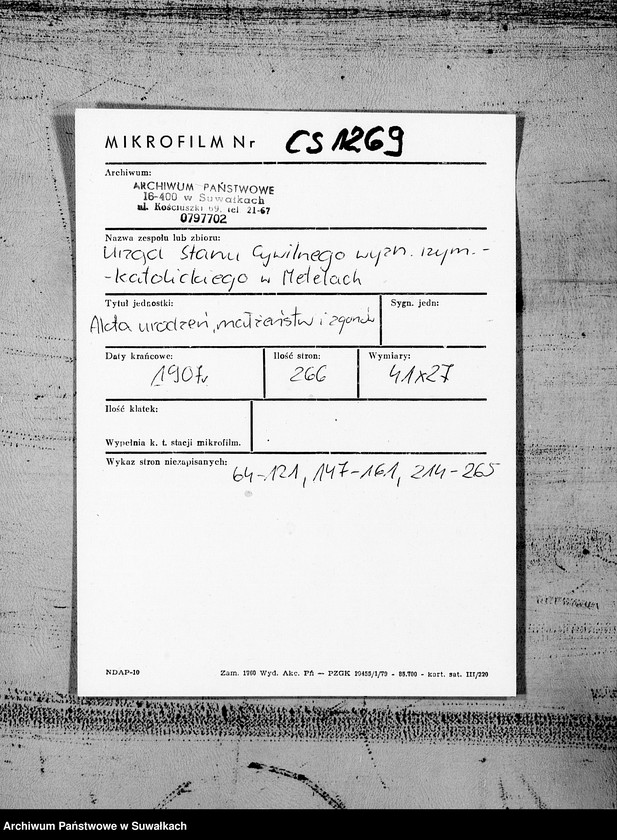 MIKROFILM Nr CS 1269
Archiwum:
ARCHIWUM PAŃSTWOWE
16-400 w Suwałkach
ul. Kościuszki 69, tel 21-67
0797702
Nazwa zespołu lub zbioru:
Urząd Stanu Cywilnego wyzn. rzym.-
-katolickiego w Metelach
Tytuł jednostki:
Sygn. jedn:
Akta urodzeń, małżeństw i zgonów
Daty krańcowe:
Ilość stron:
Wymiary:
1907r
266
41x27
Ilość klatek:
Wypełnia k. t. stacji mikrofilm.
Wykaz stron niezapisanych:
64-121, 147-161, 214-265
NDAP-10
Zam. 1760 Wyd. Akc. Pń — PZGK 19455/1/79 - 85.700 - kart. sat. III/220
Archiwum Państwowe w Suwałkach